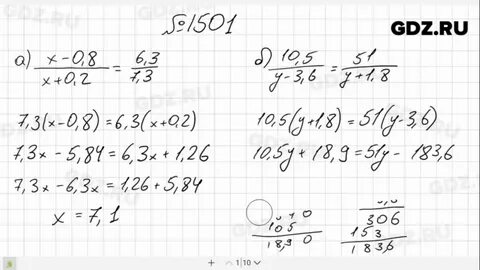 №1501
GDZ.RU
а) (x-0,8)/(x+0,2) = 6,3/7,3
б) 10,5/(y-3,6) = 51/(y+1,8)
7,3(x-0,8)=6,3(x+0,2)
10,5(y+1,8)=51(y-3,6)
7,3x-5,84=6,3x+1,26
10,5y+18,9=51y-183,6
7,3x-6,3x=1,26+5,84
x=7,1
105
306
18,90
153
183,6
1|10